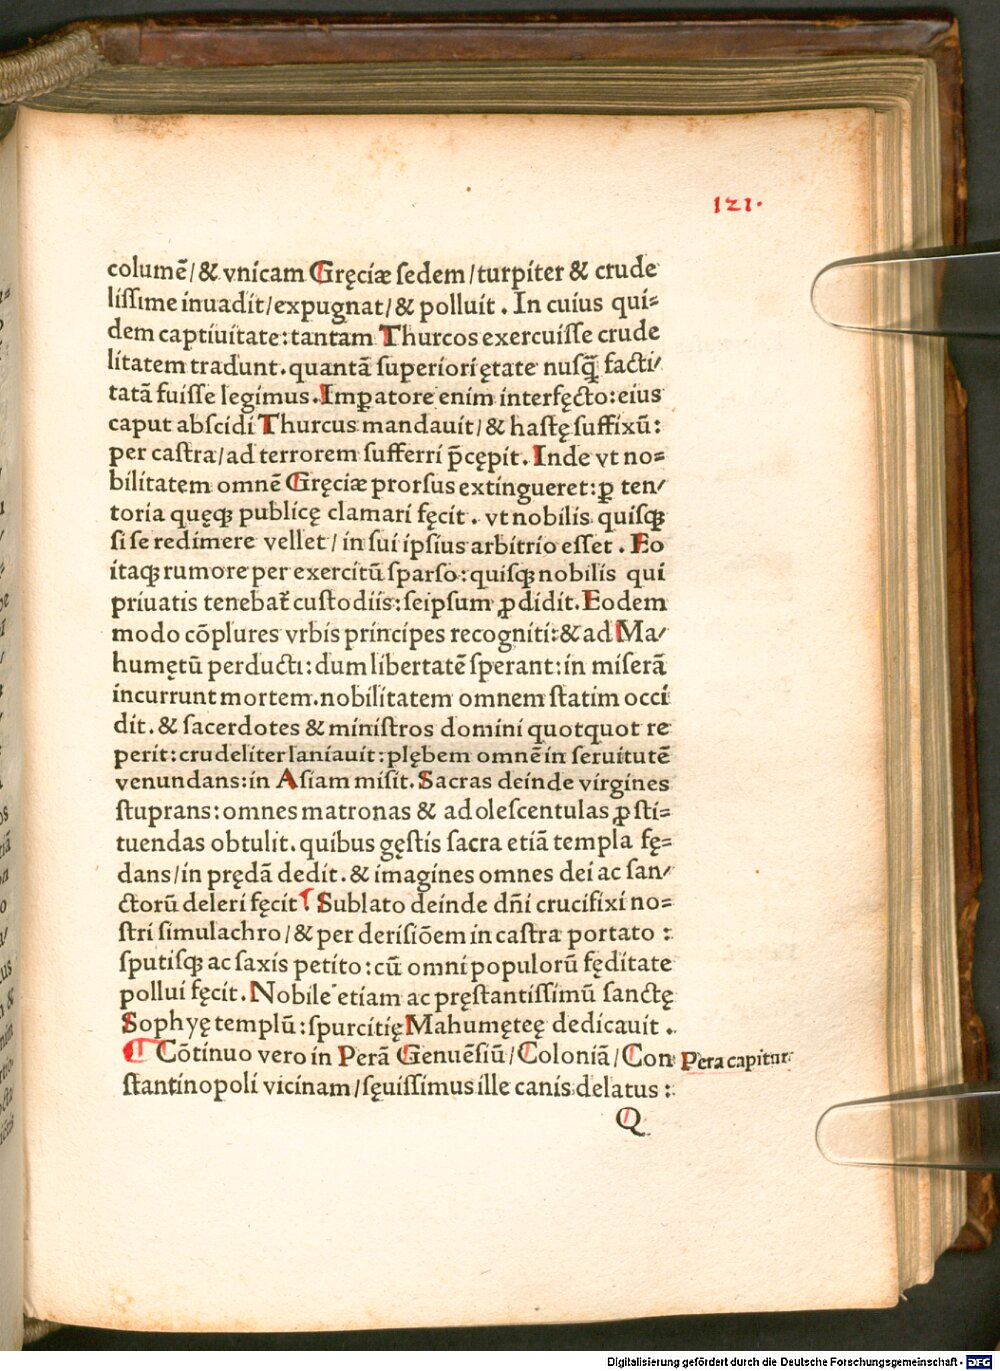 121.
columē/& vnicam Gręciæ sedem/turpiter & crude
lissime inuadit/expugnat/& polluit. In cuius qui⸗
dem captiuitate:tantam Thurcos exercuisse crude
litatem tradunt.quantā superiori ętate nusq̄ facti/
tatā fuisse legimus.Imꝑatore enim interfęcto:eius
caput abscidi Thurcus mandauit/& hastę suffixū:
per castra/ad terrorem sufferri p̄cępit. Inde vt no⸗
bilitatem omnē Gręciæ prorsus extingueret:ꝑ ten/
toria quęqꝫ publicę clamari fęcit. vt nobilis quisqꝫ
si se redimere vellet/in sui ipsius arbitrio esset. Eo
itaqꝫ rumore per exercitū sparso:quisqꝫ nobilis qui
priuatis tenebat̄ custodiis:seipsum ꝓdidit.Eodem
modo cōplures vrbis principes recogniti:&ad Ma/
humętū perducti:dum libertatē sperant:in miserā
incurrunt mortem.nobilitatem omnem statim occi
dit.& sacerdotes & ministros domini quotquot re
perit:crudeliter laniauit:plębem omnē in seruitutē
venundans:in Asiam misit.Sacras deinde virgines
stuprans:omnes matronas & adolescentulas ꝓsti⸗
tuendas obtulit.quibus gęstis sacra etiā templa fę⸗
dans/in prędā dedit.& imagines omnes dei ac san/
ctorū deleri fęcit. Sublato deinde dn̄i crucifixi no⸗
stri simulachro/& per derisiōem in castra portato :
sputisqꝫ ac saxis petito:cū omni populorū fęditate
pollui fęcit. Nobile etiam ac pręstantissimū sanctę
Sophyę templū:spurcitię Mahumęteę dedicauit.
¶ Cōtinuo vero in Perā Genuēsiū/Coloniā/Con
Pera capitur.
stantinopoli vicinam/sęuissimus ille canis delatus:
Q
Digitalisierung gefördert durch die Deutsche Forschungsgemeinschaft - DFG